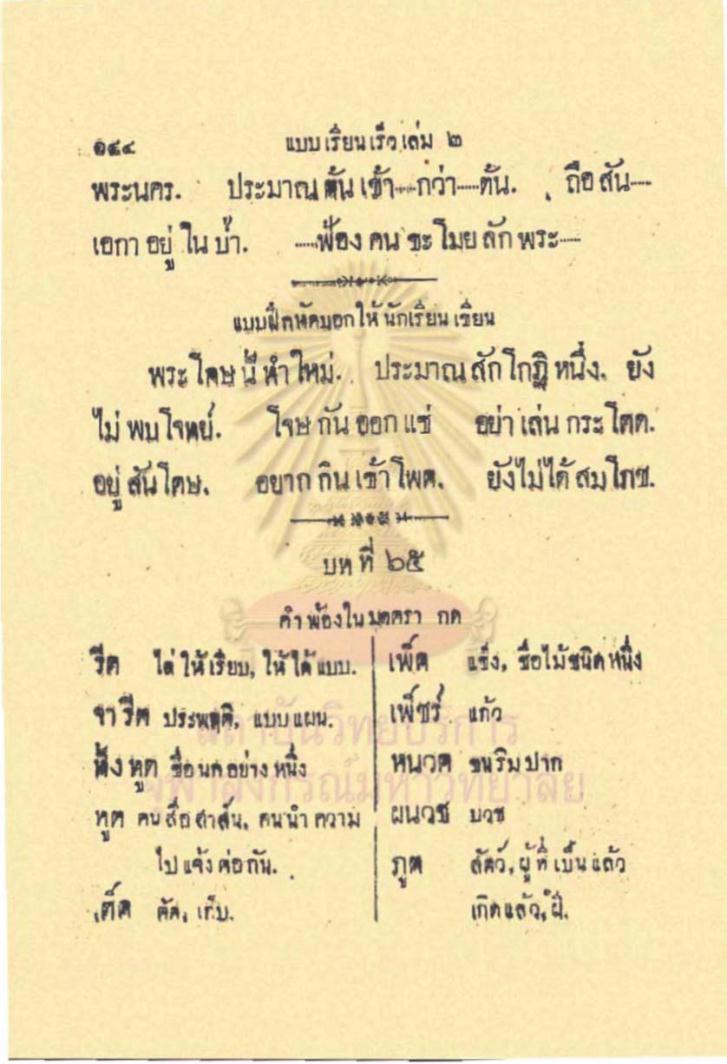 ๑๔๔ แบบเรียนเร็วเล่ม ๒
พระนคร. ประมาณตันเข้า....กว่า.....ตัน. ถือสัน....
เอกาอยู่ในป่า. .....ฟ้องคนขะโมยลักพระ....
แบบฝึกหัดบอกให้นักเรียนเขียน
พระโคษนี้ทำใหม่. ประมาณสักโกฏิหนึ่ง. ยัง
ไม่พบโจทย์. โจษกันออกแซ่ อย่าเล่นกระโดด.
อยู่สันโดษ. อยากกินเข้าโพด. ยังไม่ได้สมโภช.
บทที่ ๖๕
คำพ้องในมาตรา กด
รีด ไล่ให้เรียบ, ให้ได้แบบ.
จารีต ประพฤติ, แบบแผน.
ทั้งทูด ชื่อนกอย่างหนึ่ง
ทูต คนสื่อสาส์น, คนนำความ
ไปแจ้งต่อกัน.
เด็ด ตัด, เก็บ.
เพ็ด แข็ง, ชื่อไม้ชนิดหนึ่ง
เพ็ชร์ แก้ว
หนวด ขนริมปาก
ผนวช บวช
ภูต สัตว์, ผู้ที่เป็นแล้ว
เกิดแล้ว, ผี.
สถาบันวิทยบริการ
จุฬาลงกรณ์มหาวิทยาลัย